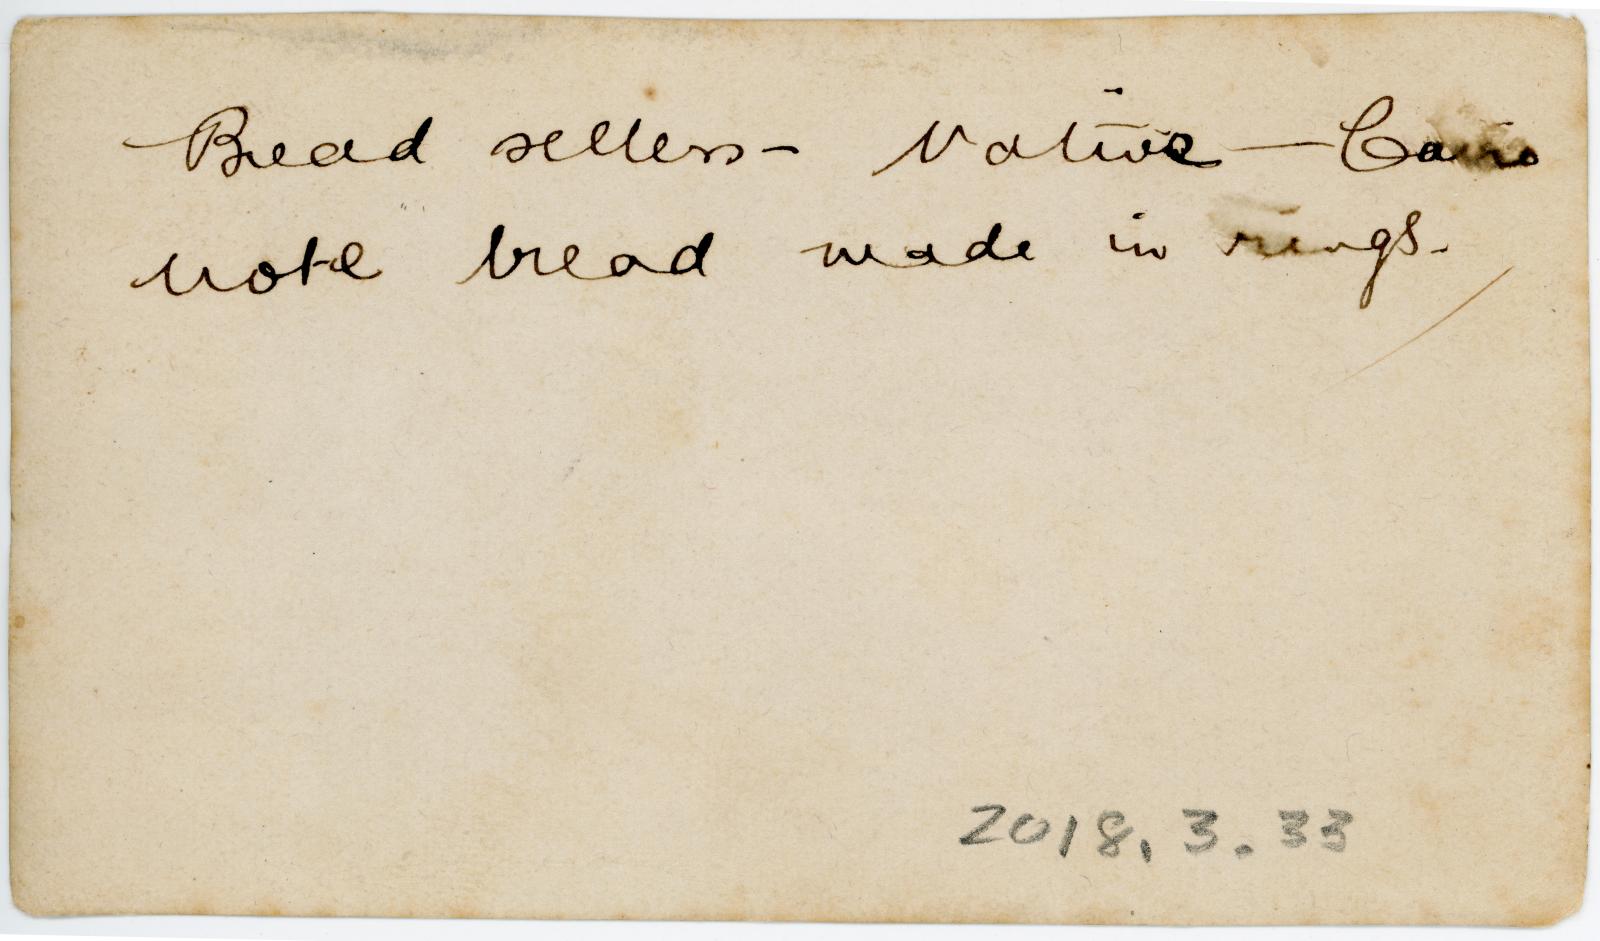 Bread sellers - Native - Cairo
note bread made in rings.
2018.3.33